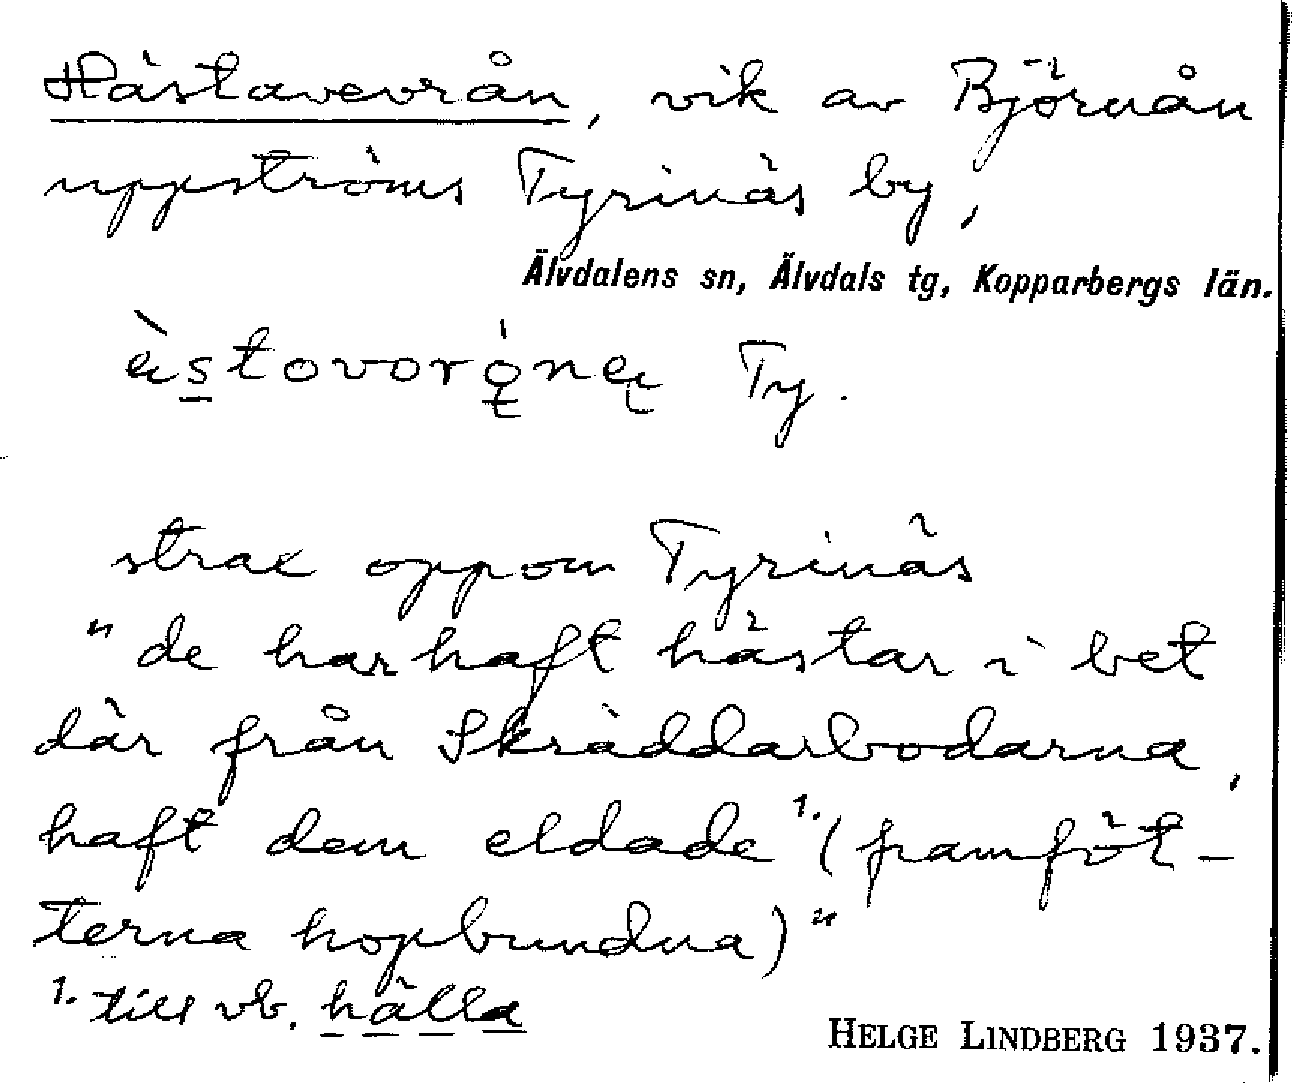 Hästavevrån, vik av Björnån
uppströms Tyrinäs by,
Älvdalens sn, Älvdals tg, Kopparbergs län.
Ty.
strax oppom Tyrinäs
"de har haft hästar i bet
där från Skräddarbodarna,
haft dem eldade 1. (framföt-
terna hopbundna)"
1. till vb. hälla
HELGE LINDBERG 1937.